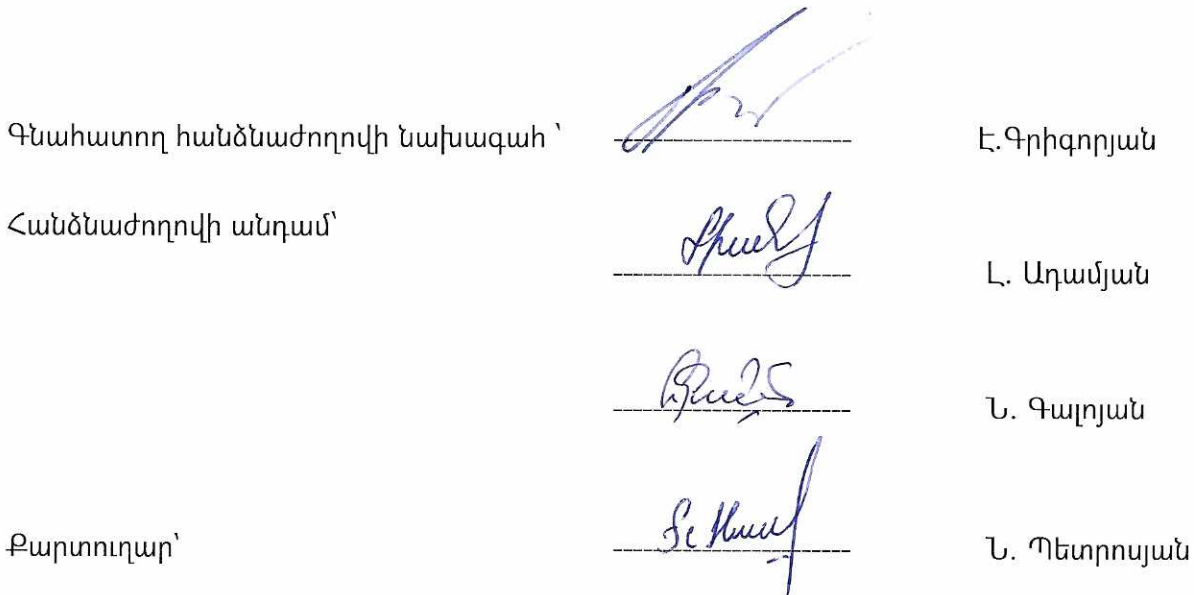 Գնահատող հանձնաժողովի նախագահ ՝ Է.Գրիգորյան
Հանձնաժողովի անդամ՝ Լ. Ադամյան
Ն. Գալոյան
Քարտուղար՝ Ն. Պետրոսյան